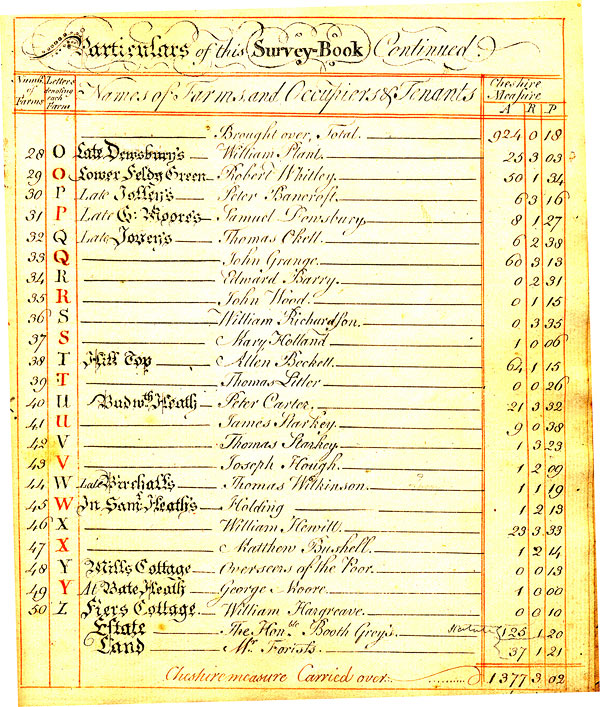 Particulars of this Survey-Book Continued
Numb. of Farms Letters denoting each Farm Names of Farms, and Occupiers & Tenants Cheshire Measure
A R P
Brought over, Total. 924 0 18
28 O Late Dewsbury's William Plant. 25 3 03
29 O Lower Feldy Green Robert Whitley. 50 1 34
30 P Late Jolley's Peter Bancroft. 6 3 16
31 P Late G: Moore's Samuel Dewsbury 8 1 27
32 Q Late Thomas Okell 6 2 38
33 Q John Grange. 60 3 13
34 R Edward Barry. 0 2 31
35 R John Wood. 0 1 15
36 S William Richardson. 0 3 35
37 S Mary Holland 1 0 06
38 T Hill Top Allen Beckett. 64 1 15
39 T Thomas Litler 0 0 26
40 U Budwth Heath Peter Carter. 21 3 32
41 U James Starkey. 9 0 38
42 V Thomas Starkey. 1 3 23
43 V Joseph Hough. 1 2 09
44 W Late Birchall's Thomas Wilkinson. 1 1 19
45 W In Saml. Heath's Holding 1 2 13
46 X William Hewitt. 23 3 33
47 X Matthew Bushell. 1 2 14
48 Y Mills Cottage Overseers of the Poor. 0 0 13
49 Y At Bate Heath George Moore. 1 0 00
50 Z Fiers Cottage William Hargreave. 0 0 10
Estate The Honble. Booth Grey's. Statute 125 1 20
Land Mr. Forist's 37 1 21
Cheshire measure Carried over 1377 3 02